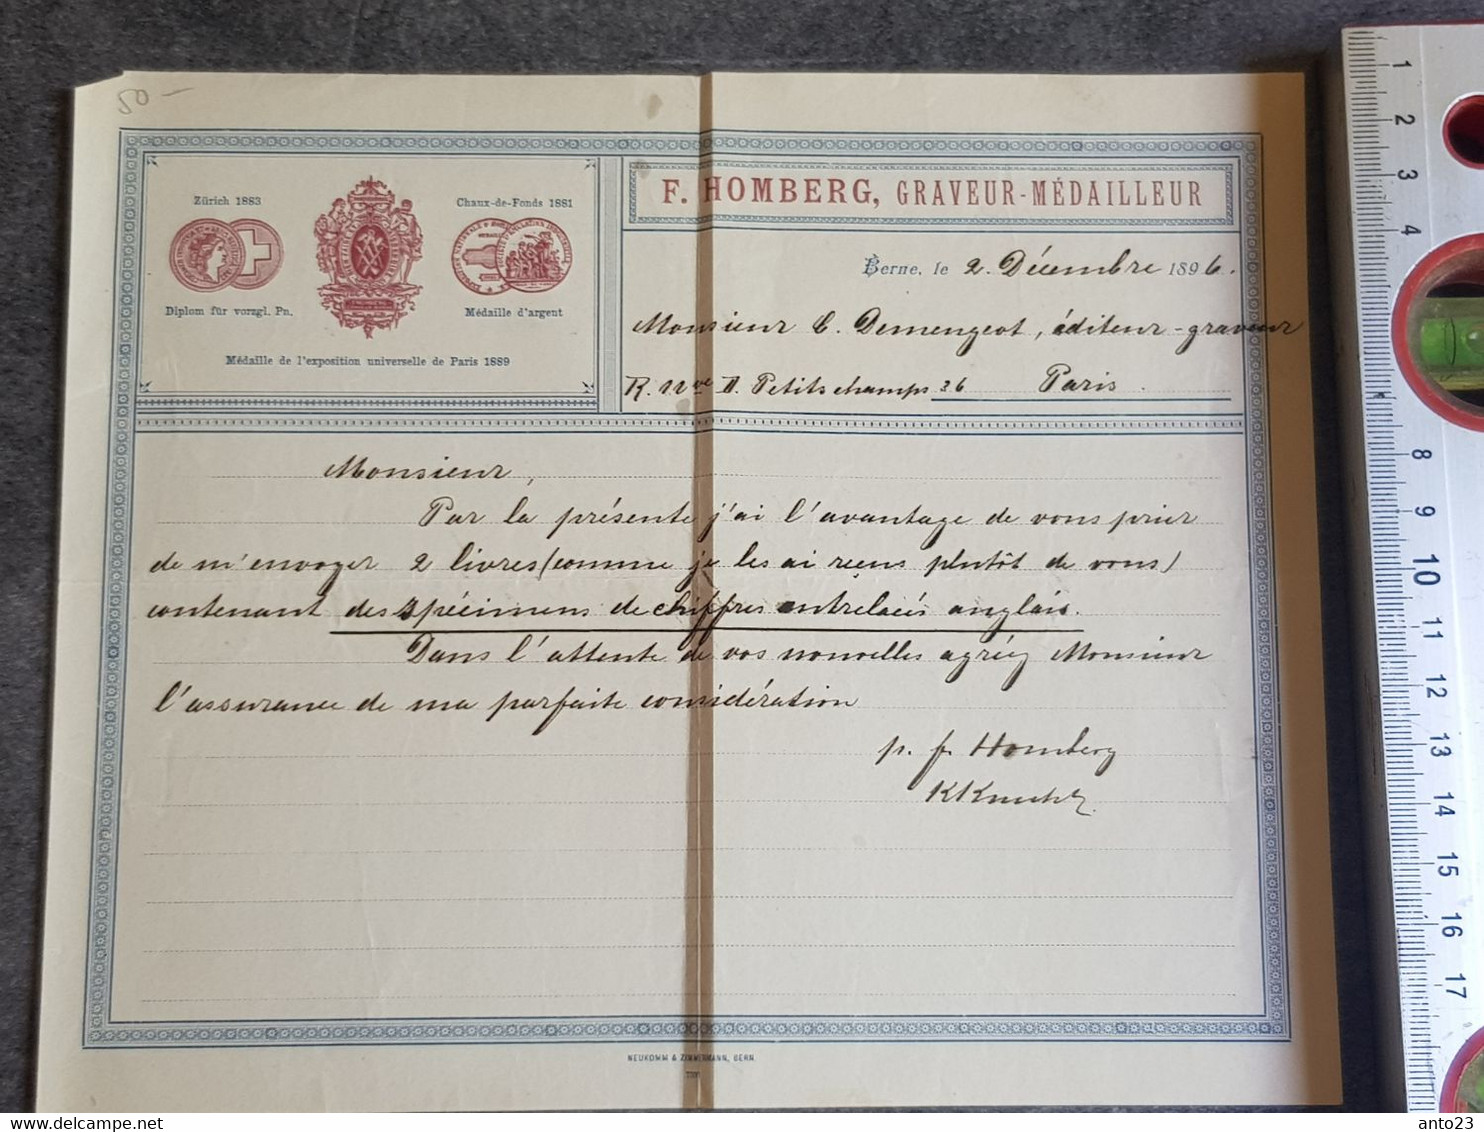 20 —
Zürich 1883
Chaux-de-Fonds 1881
Diplom für vorzgl. Pn.
Médaille d'argent
Médaille de l'exposition universelle de Paris 1889
F. HOMBERG, GRAVEUR-MÉDAILLEUR
Berne, le 2. Décembre 1896.
Monsieur C. Demengeot, éditeur-graveur
R. Nve d. Petits champs 36 Paris.
Monsieur,
Par la présente j'ai l'avantage de vous prier
de m'envoyer 2 livres (comme je les ai reçus plutôt de vous)
contenant des spécimens de chiffres entrelacés anglais.
Dans l'attente de vos nouvelles agréez Monsieur
l'assurance de ma parfaite considération
p. f. Homberg
NEUKOMM & ZIMMERMANN, BERN
1
2
3
4
8
9
10
11
12
13
14
15
16
17
anto23